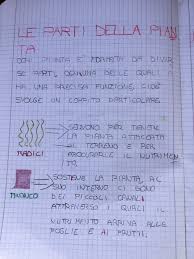 LE PARTI DELLA PIAN
TA
OGNI PIANTA È FORMATA DA DIVER
SE PARTI, OGNUNA DELLE QUALI
HA UNA PRECISA FUNZIONE, CIOÈ
SVOLGE UN COMPITO PARTICOLARE.
SERVONO PER TENERE
LA PIANTA ATTACCATA
AL TERRENO E PER
ASSORBIRE IL NUTRIMENTO
RADICI
SOSTIENE LA PIANTA, AL
SUO INTERNO CI SONO
DEI PICCOLI CANALI
ATTRAVERSO I QUALI IL
TRONCO
NUTRIMENTO ARRIVA ALLE
FOGLIE E AI FRUTTI.